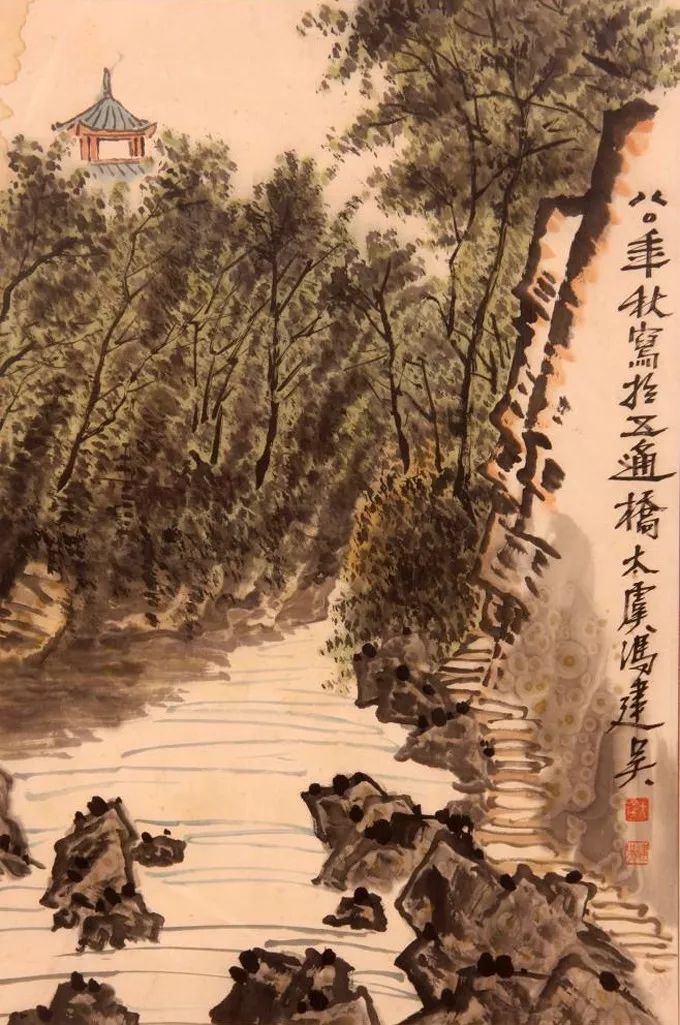 八〇年秋寫於五通橋太虞馮建吳